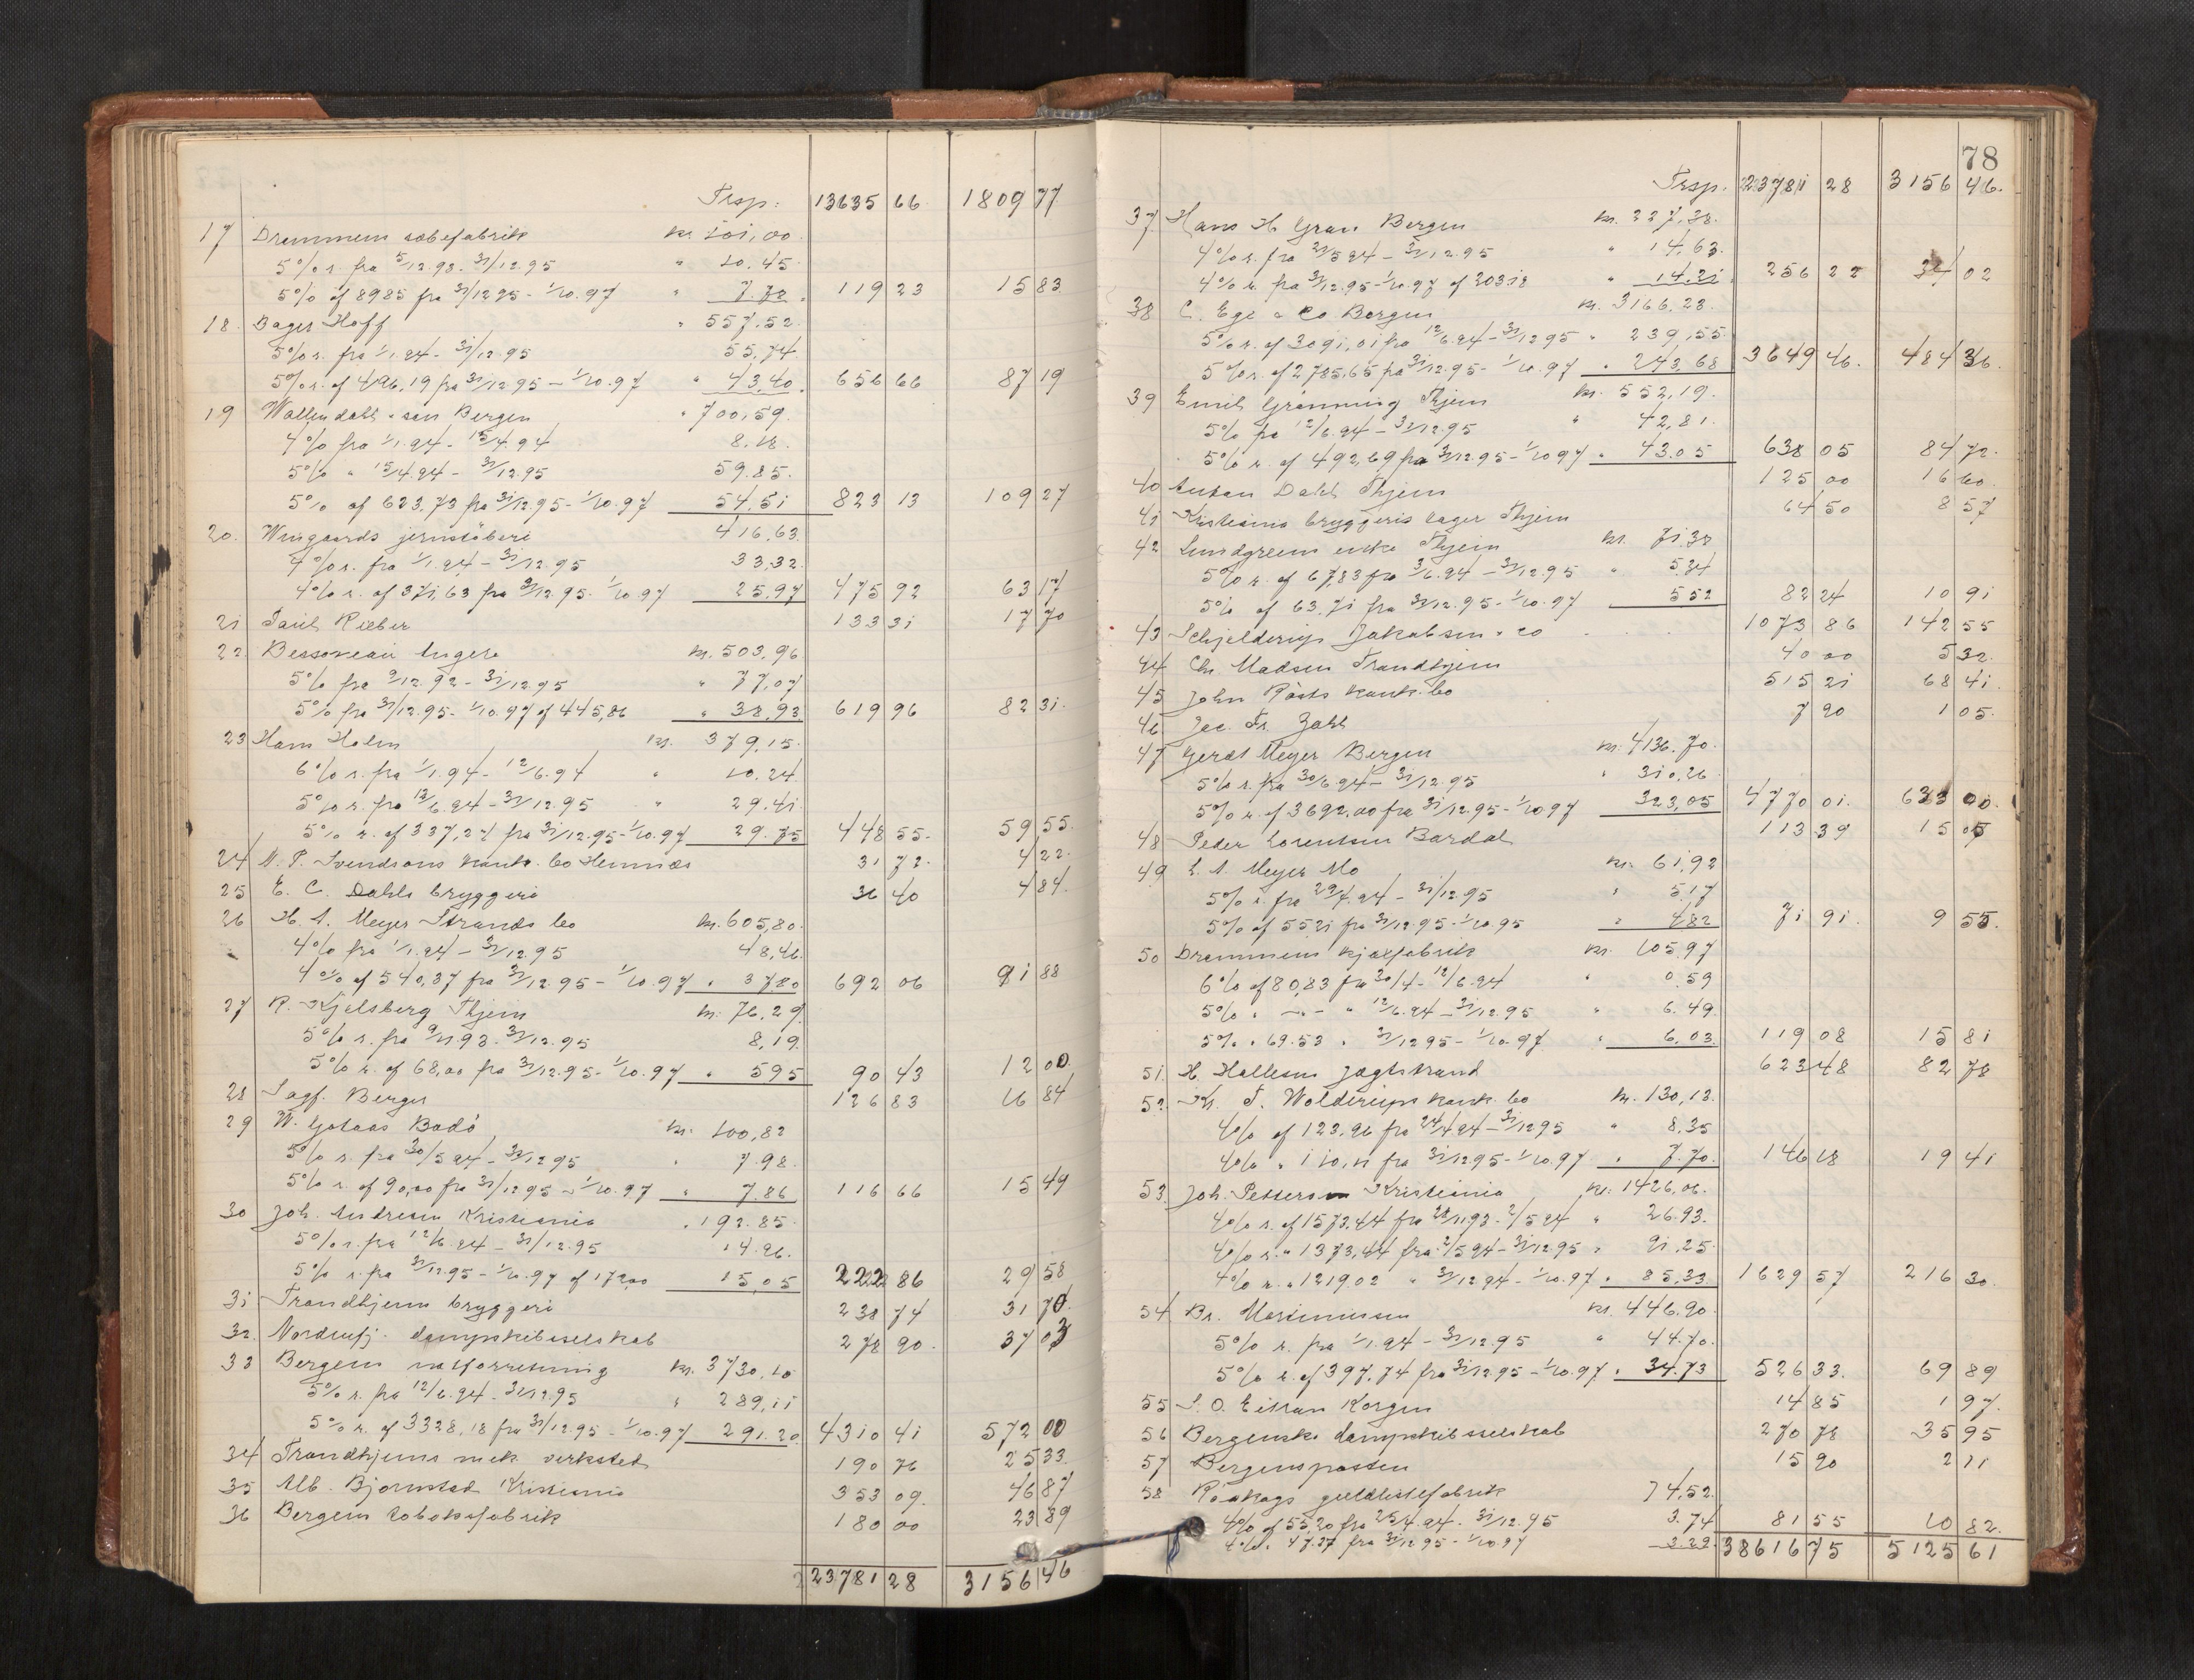 Trsp: 13635 66 1809 77
17 Drammens sæbefabrik kr. 101,00
5% r. fra 5/12.93 - 31/12.95 " 10.45
5% af 8985 fra 31/12 95 - 1/10.97 " 7.78 119 23 15 83
18. Hoff " 557.52
5% r. fra 1/1.94 - 31/12 95 55,74
5% r. af 496,19 fra 31/12 95 - 1/10.97 " 43,40 656 66 87 19
19 Wallendahl & søn Bergen " 700,59
4% fra 1/1.94 - 15/4 94 8.18
5% " 15/4.94 - 31/12.95 59.85
5% af 623,73 fra 31/12 95 - 1/10.97 54,51 823 13 109 27
20. Wingaards jernstøberi 416,63
4% r. fra 1/1.94 - 31/12.95 33,32
4% r. af 371,63 fra 31/12.95 - 1/10.97 25,97 475 92 63 17
21 Paul Rieber 133 31 17 70
22 kr. 503,96
5% fra 9/12.92 - 31/12.95 " 77,07
5% fra 31/12.95 - 1/10.97 af 445,86 " 38,93 619 96 82 31
23 Hans Holm kr. 379,15
6% r. fra 1/1.94 - 12/6.94 " 10,24
5% r. fra 12/6.94 - 31/12.95 " 29,41
5% r. af 337,24 fra 31/12.95 - 1/10.97 29.75 448 55 59 55
24 N. P. Svendsens konk. bo Hemnæs 31 72 4 22
25 E. C. Dahls bryggeri 36 40 4 84
26 H. A. Meyer Strands bo kr. 605,80
4% fra 1/1.94 - 31/12.95 48,46
4% af 540,37 fra 31/12.95 - 1/10.97 " 37,80 692 06 91 88
27 R. Kjelsberg Thjem kr. 76,29
5% r. fra 9/11.93 - 31/12.95 8,19
5% r. af 68,00 fra 31/12.95 - 1/10.97 " 595 90 43 12 00
28 Sagf. Berger 126 83 16 84
29 W. Gotaas Bodø kr. 100,82
5% r. fra 30/5 94 - 31/12 95 " 7.98
5% r. af 90,00 fra 31/12 95 - 1/10.97 " 7.86 116 66 15 49
30 Joh. Andresen Kristiania " 192.85
5% r. fra 12/6.94 - 31/12.95 14.96
5% r. fra 31/12.95 - 1/10.97 af 172,00 15,05 222 86 29 58
31 Trondhjems bryggeri 238 74 31 70
32. Nordenfj. dampskibsselskab 278 90 37 03
33 Bergens kr. 3730,10
5% r. fra 12/6.94 - 31/12.95 " 289,11
5% r. af 3328,18 fra 31/12.95 - 1/10.97 291.20 4310 41 572 00
34 Trondhjems mek. verksted 190 76 25 33
35 Alb. Bjørnstad Kristiania 353 09 46 87
36 Bergens tobaksfabrik 180 00 23 89
23781 28 3156 46
78
Trsp. 23781 28 3156 46
37 Hans H Gran Bergen kr. 227,38
4% r. fra 21/5 94 - 31/12.95 " 14,63
4% r. fra 31/12.95 - 1/10.97 af 20318 " 14.21 256 22 34 02
38 C. Ege & Co Bergen kr. 3166,23
5% r. af 3091,01 fra 12/6.94 - 31/12 95 " 239,55
5% r. af 2785,65 fra 31/12 95 - 1/10.97 " 243,68 3649 46 484 36
39 Emil Grønning Thjem kr. 552,19
5% fra 12/6.94 - 31/12.95 " 42,81
5% r. af 492,69 fra 31/12.95 - 1/10 97 " 43.05 638 05 84 72
40 Anton Dahl Thjem 125 00 16 60
41 Kristiania bryggeris lager Thjem 64 50 8 57
42 Lundgreens enke Thjem kr. 71,38
5% r. af 67,83 fra 3/6.94 - 31/12.95 " 5.34
5% af 63.71 fra 31/12.95 - 1/10.97 552 82 24 10 91
43 Schjelderup Jakobsen & co 1073 86 142 55
44 Chr. Madsen Trondhjem 40 00 5 32
45 John Røsts konk. bo 515 21 68 41
46 Jac. Fr. Zahl 7 90 1 05
47 Gerdt Meyer Bergen kr. 4136.70
5% r. fra 30/6.94 - 31/12.95 " 310,26
5% r. af 3692,00 fra 31/12.95 - 1/10 97 323,05 4770 01 633 00
48 Peder Lorentsen Bardal 113 39 15 05
49 L. A. Meyer Mo kr. 61,92
5% r. fra 29/7.94 - 31/12.95 " 5,17
5% af 5521 fra 31/12.95 - 1/10 95 " 482 71 91 9 55
50 Drammens kjæxfabrik kr. 105,97
6% af 80,83 fra 30/4 - 12/6.94 " 0.59
5% " - " - " 12/6.94 - 31/12.95 " 6.49
5% " 69.53 " 31/12 95 - 1/10.97 " 6,03 119 08 15 81
51. H. Hallesen Jægtstrand 623 48 82 78
52. konk. bo kr. 130,13
4% af 123,96 fra 24/4 94 - 31/12 95 " 8,35
4% " 110,11 fra 31/12 95 - 1/10.97 " 7.70 146 18 19 41
53. Joh. Petterson Kristiania kr. 1426,06
4% r. af 1573,44 fra 28/11.93 - 2/5 94 " 26.93
4% r. " 1373,44 fra 2/5 94 - 31/12.95 " 91,25
4% r. " 1219 02 " 31/12.94 - 1/10.97 " 85,33 1629 57 216 30
54 Br. Martinusen kr. 446.90
5% r. fra 1/1.94 - 31/12.95 " 44.70
5% r. af 397,74 fra 31/12.95 - 1/10.97 " 34.73 526 33 69 89
55 S. O. Korgen 14 85 1 97
56 Bergenske dampskibsselskab 270 78 35 95
57 Bergensposten 15 90 2 11
58 guldlistefabrik 74,52
4% af 55,20 fra 25/4.94 - 31/12.95 3.74 81 55 10 82
4% " 47.27 fra 31/12 95 - 1/10 97 3.29 38616 75 5125 61